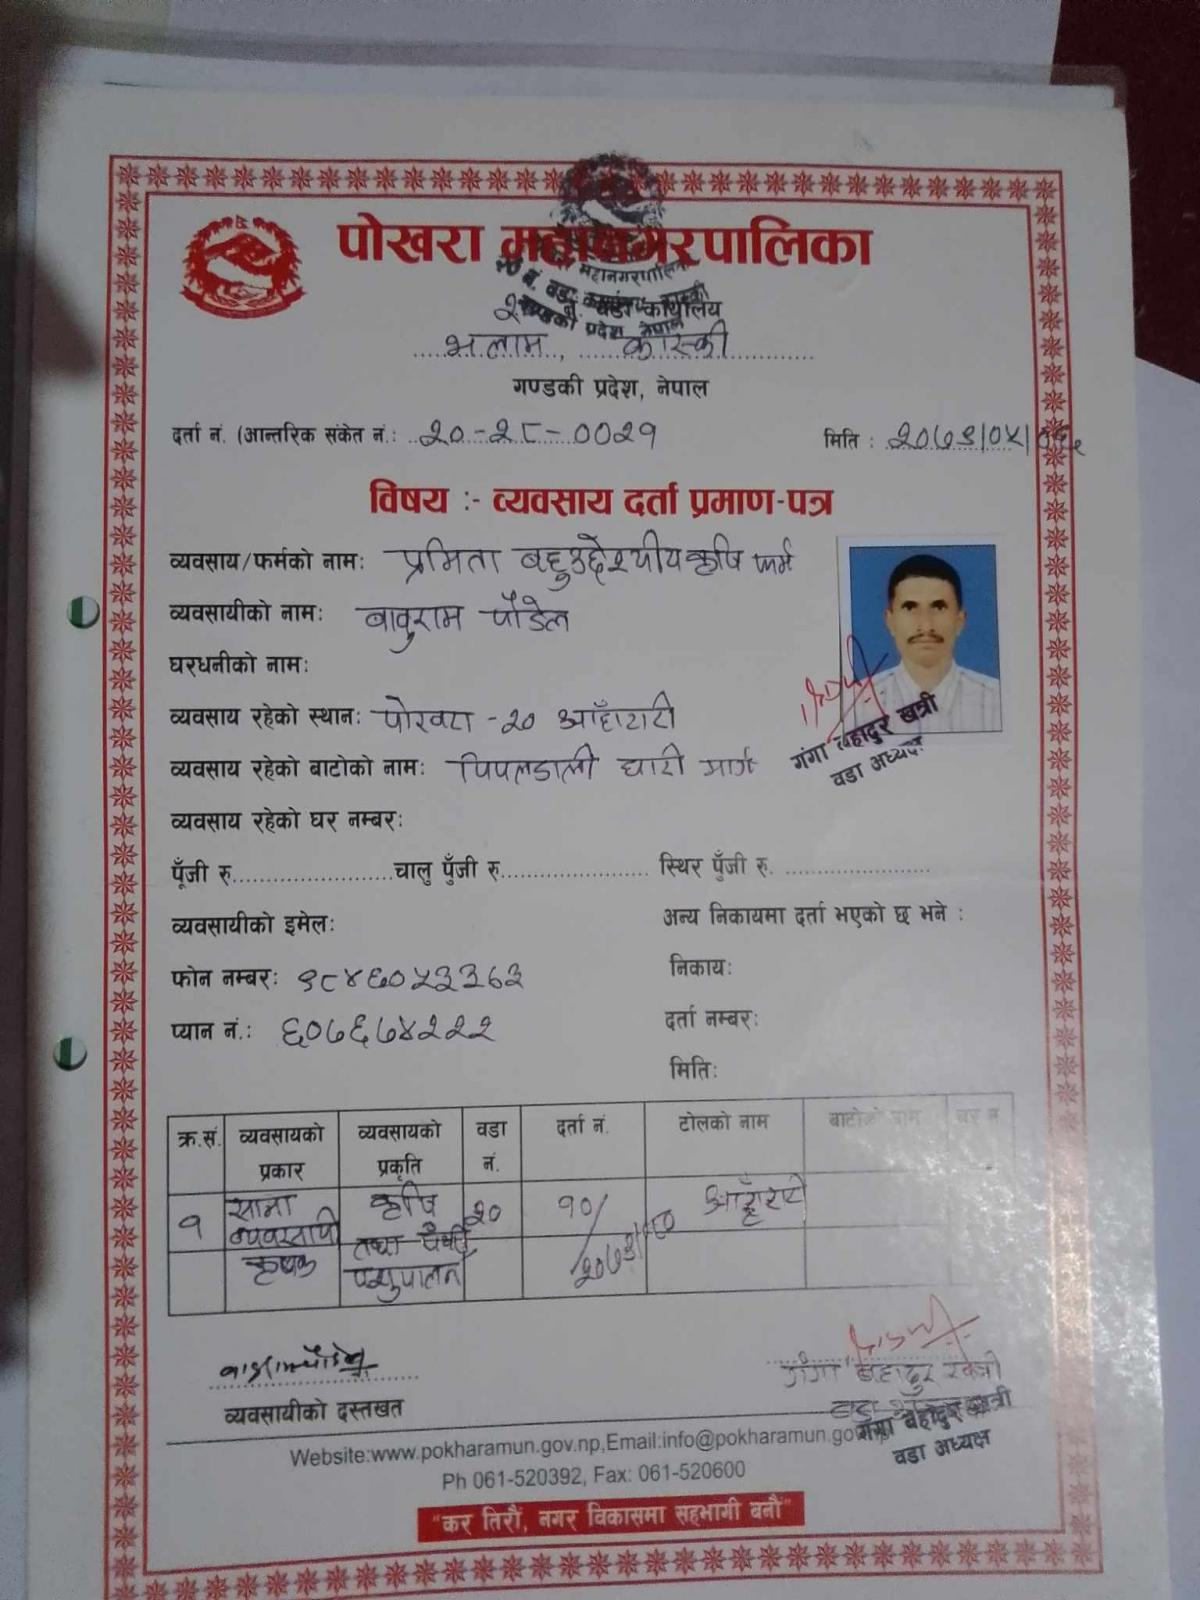 पोखरा महानगरपालिका
२० नं. वडा कार्यालय
भलाम, कास्की
गण्डकी प्रदेश, नेपाल
दर्ता नं. (आन्तरिक संकेत नं.: २०-२८-००२१
मिति : २०७९/०४/
विषय :- व्यवसाय दर्ता प्रमाण-पत्र
व्यवसाय/फर्मको नाम: प्रमिता बहुउद्देश्यीय कृषि फर्म
व्यवसायीको नाम: बाबुराम पौडेल
घरधनीको नाम:
व्यवसाय रहेको स्थान: पोखरा -२० आहाँटाटी
गंगा बहादुर खत्री
वडा अध्यक्ष
व्यवसाय रहेको बाटोको नाम: पिपलडाली घारी मार्ग
व्यवसाय रहेको घर नम्बर:
पूँजी रु. चालु पुँजी रु. स्थिर पुँजी रु.
व्यवसायीको इमेल: अन्य निकायमा दर्ता भएको छ भने :
फोन नम्बर: ९८४६०५३३६३ निकाय:
प्यान नं.: ६०७६७४२२२ दर्ता नम्बर:
मिति:
क्र.सं. व्यवसायको प्रकार व्यवसायको प्रकृति वडा नं. दर्ता नं. टोलको नाम बाटोको नाम घर नं.
१ साना व्यवसायी कृषक कृषि तथा पशुपालन २० १०/
व्यवसायीको दस्तखत
गंगा बहादुर खत्री
गंगा बहादुर खत्री
वडा अध्यक्ष
Website:www.pokharamun.gov.np,Email:info@pokharamun.gov.np
Ph 061-520392, Fax: 061-520600
"कर तिरौं, नगर विकासमा सहभागी बनौं"